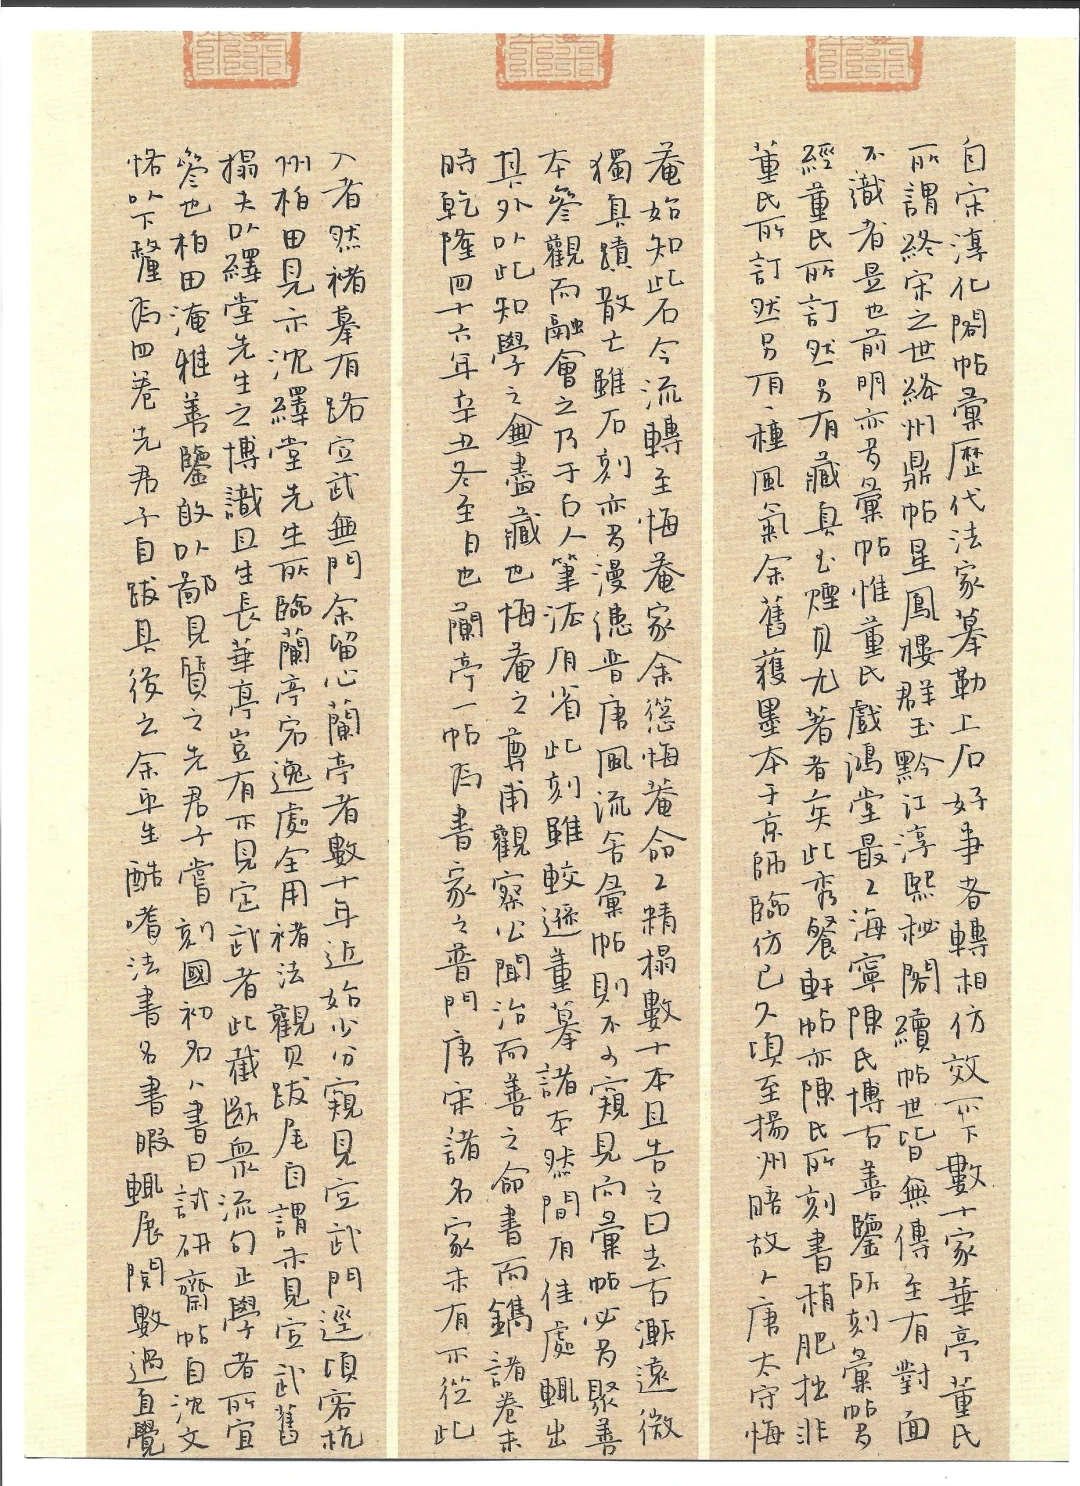 自宋淳化閣帖彙歷代法家摹勒上石好事者轉相仿效不下數十家華亭董氏
所謂終宋之世絳州鼎帖星鳳樓群玉黔江淳熙秘閣續帖世皆無傳至有對面
不識者是也前明亦多彙帖惟董氏戲鴻堂最工海寧陳氏博古善鑒所刻彙帖多
經董氏所訂然另有藏真玉煙其尤著者矣此秀餐軒帖亦陳氏所刻書稍肥拙非
董氏所訂然另有一種風氣余舊獲墨本于京師臨仿已久頃至揚州晤故人唐太守悔
菴始知此石今流轉至悔菴家余慫悔菴命工精榻數十本且告之曰去古漸遠微
獨真蹟散亡雖石刻亦多漫漶晉唐風流舍彙帖則不可窺見而彙帖必多聚善
本參觀而融會之乃于古人筆法有省此刻雖較遜董摹諸本然間有佳處輒出
其外以此知學之無盡藏也悔菴之尊甫觀察公聞治而善之命書而鐫諸卷末
時乾隆四十六年辛丑冬至日也蘭亭一帖為書家之普門唐宋諸名家未有不從此
入者然褚摹有路定武無門余留心蘭亭者數十年近始少分窺見定武門逕頃客杭
州柏田見示沈繹堂先生所臨蘭亭宕逸處全用褚法觀其跋尾自謂未見定武舊
搨夫以繹堂先生之博識且生長華亭豈有不見定武者此截斷眾流句正學者所宜
參也柏田淹雅善鑒敢以鄙見質之先君子嘗刻國初名人書曰試研齋帖自沈文
恪以下釐為四卷先君子自跋其後之余平生酷嗜法書名書暇輒展閱數過直覺